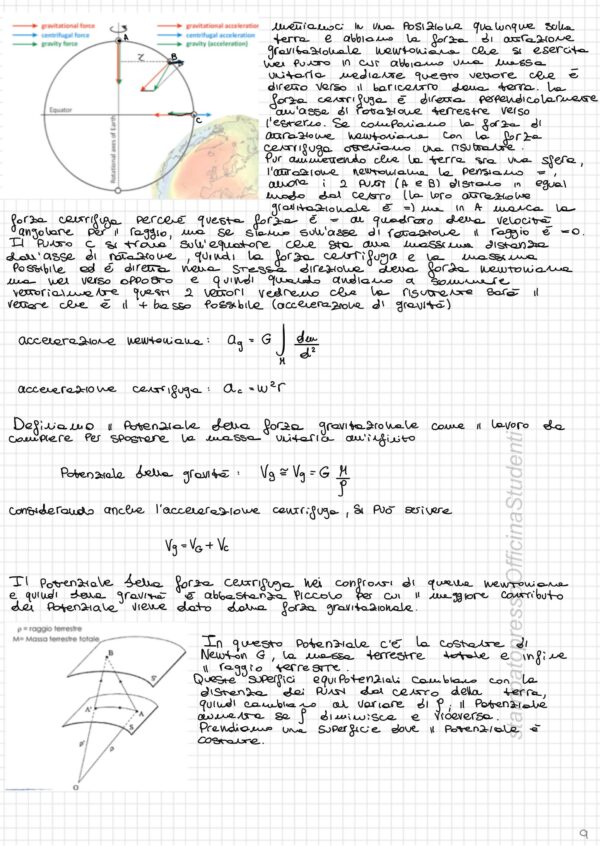 gravitational force
centrifugal force
gravity force
gravitational acceleration
centrifugal acceleration
gravity (acceleration)
A
r
B
Equator
C
Rotational axes of Earth
mettiamoci in una posizione qualunque sulla
terra e abbiamo la forza di attrazione
gravitazionale newtoniana che si esercita
nel punto in cui abbiamo una massa
unitaria mediante questo vettore che è
diretto verso il baricentro della terra. la
forza centrifuga è diretta perpendicolarmente
all'asse di rotazione terrestre verso
l'esterno. Se componiamo la forza di
attrazione newtoniana con la forza
centrifuga otteniamo una risultante.
Pur ammettendo che la terra sia una sfera,
l'attrazione newtoniana la pensiamo =,
allora i 2 punti (A e B) distano in egual
modo dal centro (la loro attrazione
gravitazionale è =) ma in A manca la
forza centrifuga perché questa forza è = al quadrato della velocità
angolare per il raggio, ma se siamo sull'asse di rotazione il raggio è =0.
Il punto C si trova sull'equatore che sta alla massima distanza
dall'asse di rotazione, quindi la forza centrifuga è la massima
possibile ed è diretta nella stessa direzione della forza newtoniana
ma nel verso opposto e quindi quando andiamo a sommare
vettorialmente questi 2 vettori vedremo che la risultante sarà il
vettore che è il + basso possibile (accelerazione di gravità)
accelerazione newtoniana: ag = G ∫M dm/d²
accelerazione centrifuga: ac = w²r
Definiamo il potenziale della forza gravitazionale come il lavoro da
compiere per spostare la massa unitaria all'infinito
Potenziale della gravità: Vg ≅ Vg = G M/ρ
considerando anche l'accelerazione centrifuga, si può scrivere
Vg = VG + Vc
Il potenziale della forza centrifuga nei confronti di quella newtoniana
e quindi della gravità è abbastanza piccolo per cui il maggiore contributo
del potenziale viene dato dalla forza gravitazionale.
ρ = raggio terrestre
M= Massa terrestre totale
B
S'
A'
A
S
ρ'
ρ
O
In questo potenziale c'è la costante di
Newton G, la massa terrestre totale e infine
il raggio terrestre.
Queste superfici equipotenziali cambiano con la
distanza dei punti dal centro della terra,
quindi cambiano al variare di ρ, il potenziale
aumenta se ρ diminuisce e viceversa.
Prendiamo una superficie dove il potenziale è
costante.
stampatopressoOfficinaStudenti
9